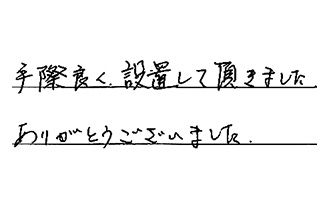 手際良く、設置して頂きました
ありがとうございました.